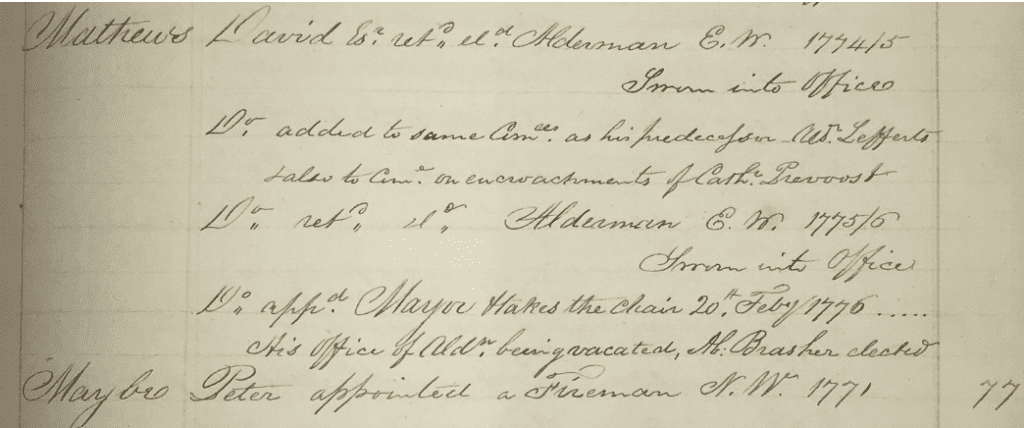 Mathews David Esr. retd. eld. Alderman E. W. 1774/5
Sworn into Office
Do. added to same Comees. as his predecessor Ald. Lefferts
& also to Come. on encroachments of Cathe. Prevoost
Do. retd. eld. Alderman E. W. 1775/6
Sworn into Office
Do. appd. Mayor & takes the Chair 20th. Feby 1776 .....
His Office of Aldn. being vacated, Ab: Brasher elected
Maybe Peter appointed a Fireman N. W. 1771 77